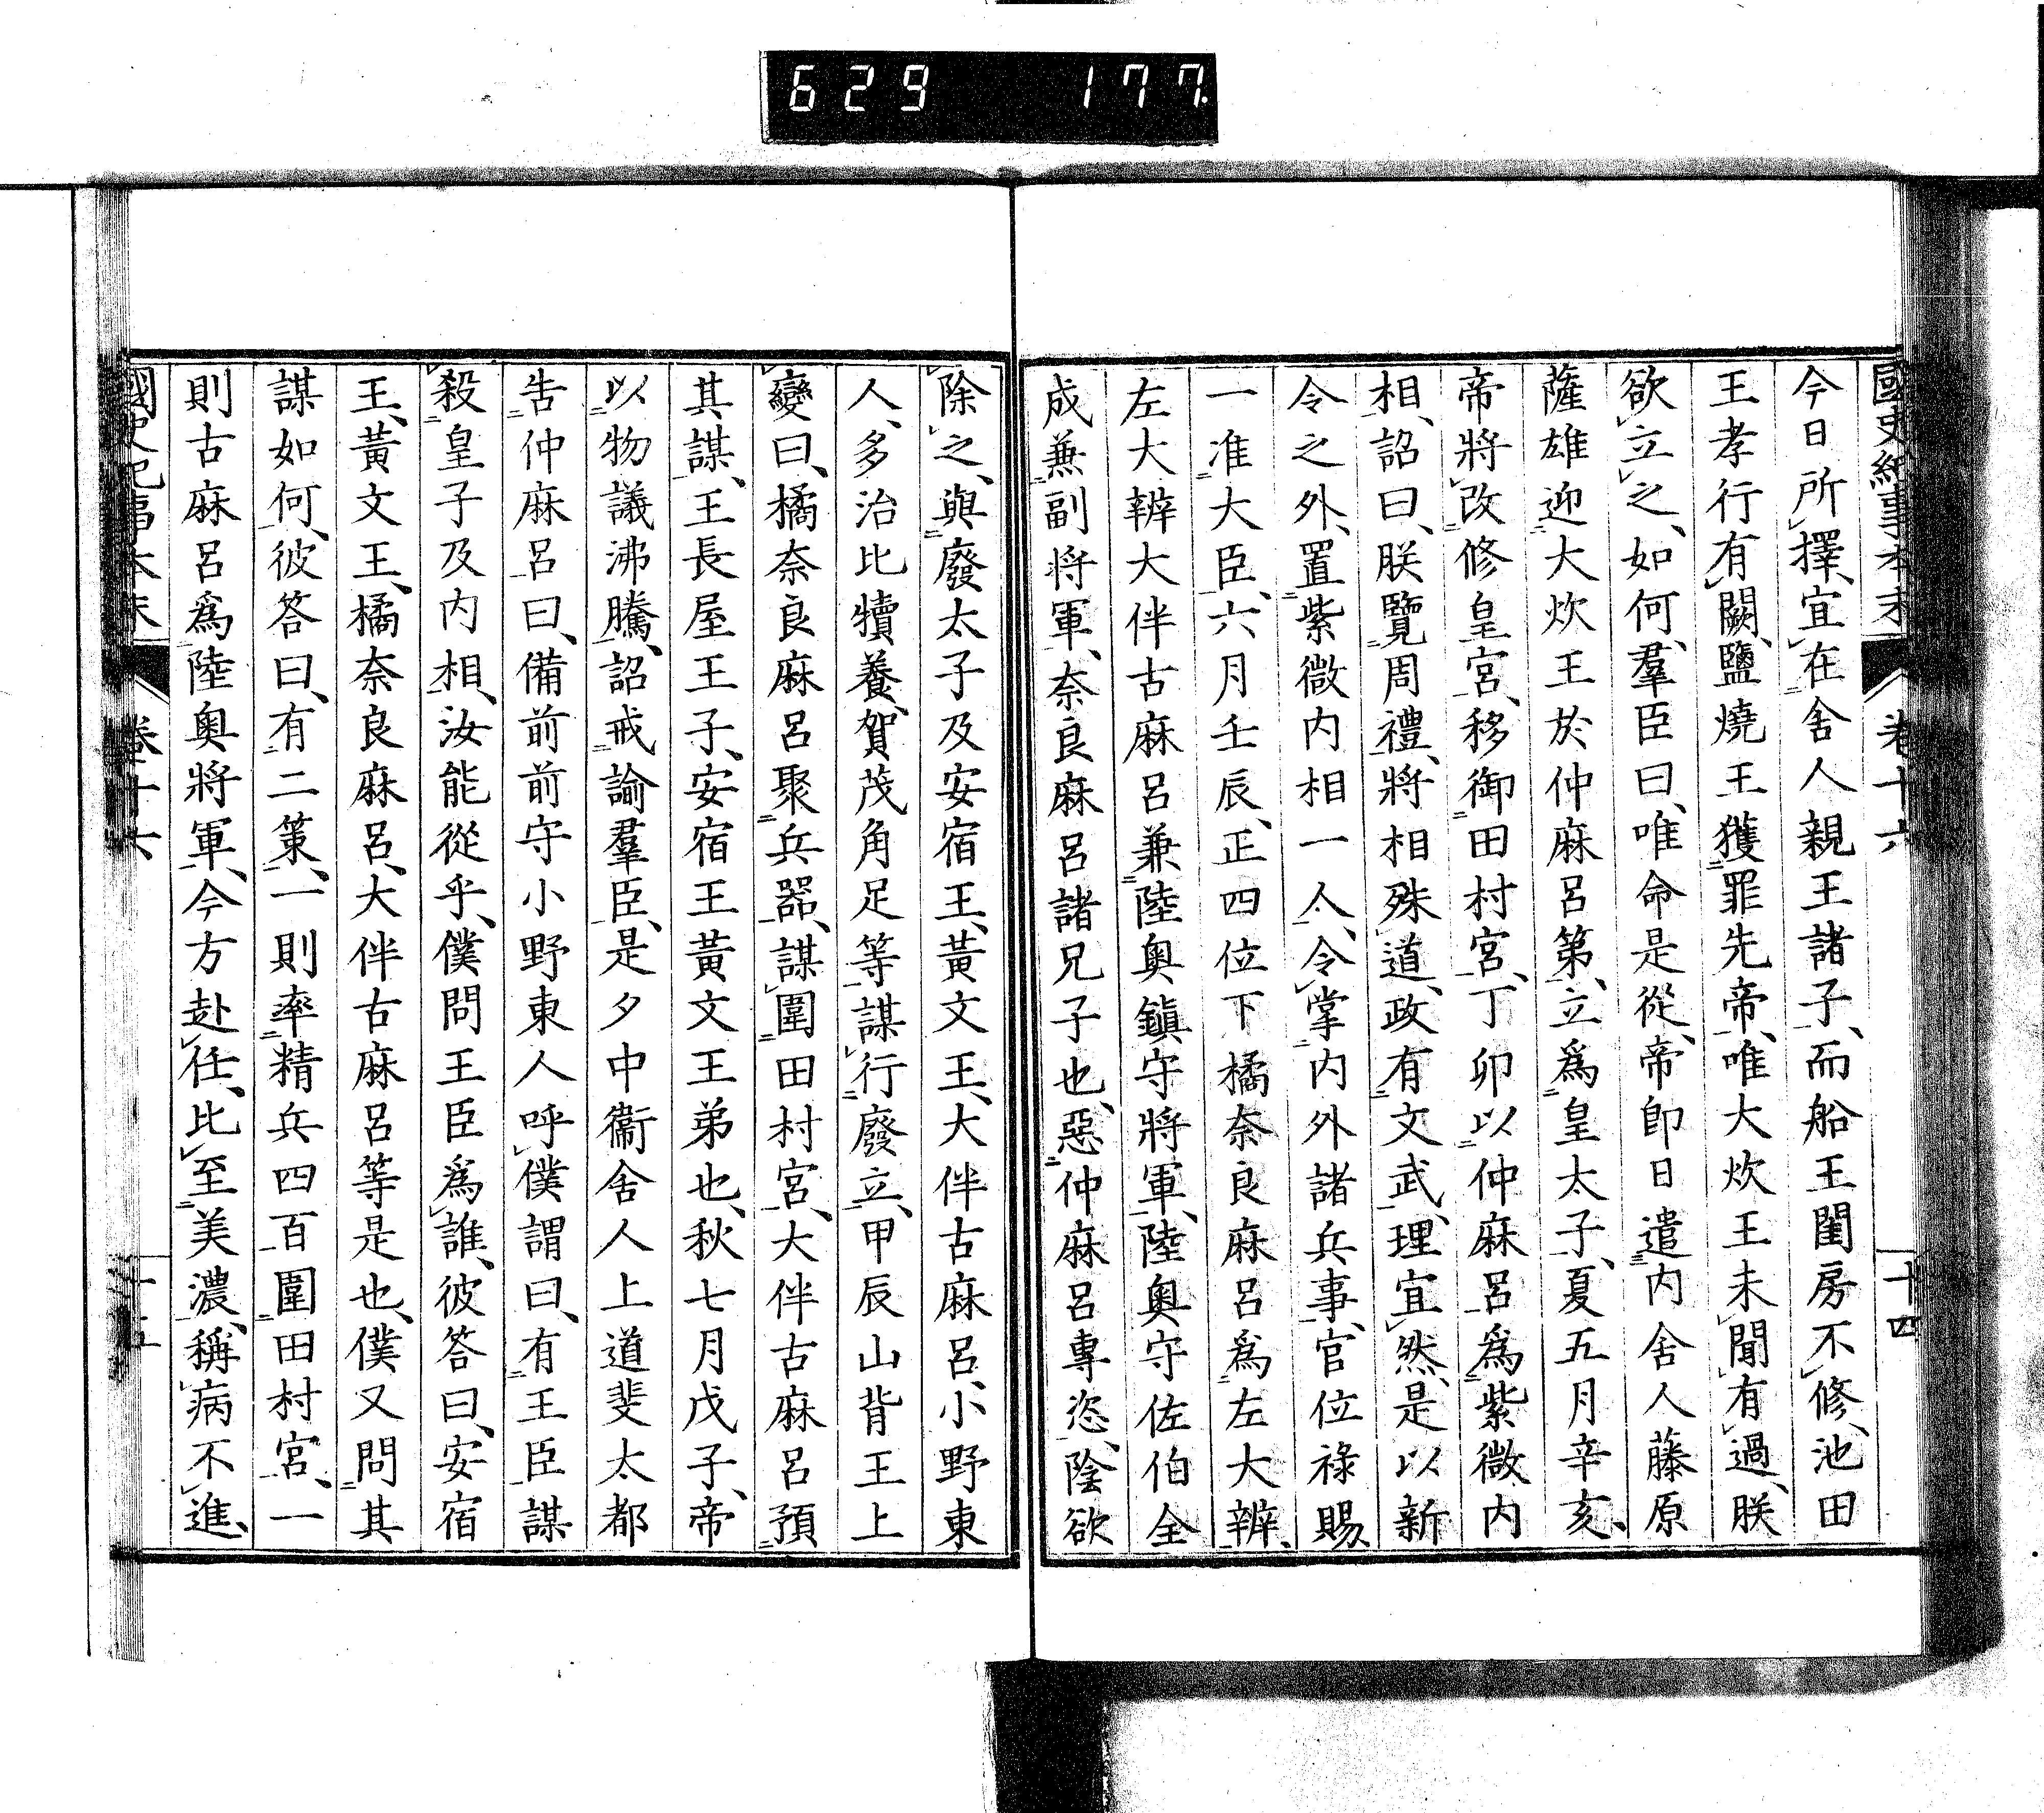 629 177
國史紀事本末 卷十六 十四
今日所擇、宜在舍人親王諸子、而船王閨房不修、池田
王孝行有闕、鹽燒王獲罪先帝、唯大炊王未聞有過、朕
欲立之、如何、羣臣曰、唯命是從、帝卽日遣内舍人藤原
薩雄迎大炊王於仲麻呂第、立爲皇太子、夏五月辛亥、
帝將改修皇宮、移御田村宮、丁卯以仲麻呂爲紫微内
相、詔曰、朕覽周禮、將相殊道、政有文武、理宜然、是以新
令之外、置紫微内相一人、令掌内外諸兵事、官位祿賜
一准大臣、六月壬辰、正四位下橘奈良麻呂爲左大辨、
左大辨大伴古麻呂兼陸奥鎮守將軍、陸奥守佐伯全
成兼副將軍、奈良麻呂諸兄子也、惡仲麻呂專恣、陰欲
除之、與廢太子及安宿王、黃文王、大伴古麻呂、小野東
人、多治比犢養、賀茂角足等謀行廢立、甲辰山背王上
變曰、橘奈良麻呂聚兵器、謀圍田村宮、大伴古麻呂預
其謀、王長屋王子、安宿王黃文王弟也、秋七月戊子、帝
以物議沸騰、詔戒諭羣臣、是夕中衞舍人上道斐太都
告仲麻呂曰、備前前守小野東人呼僕謂曰、有王臣謀
殺皇子及内相、汝能從乎、僕問王臣爲誰、彼答曰、安宿
王、黃文王、橘奈良麻呂、大伴古麻呂等是也、僕又問其
謀如何、彼答曰、有二策、一則率精兵四百圍田村宮、一
則古麻呂爲陸奥將軍、今方赴任、比至美濃、稱病不進、
國史紀事本末 卷十六 十五